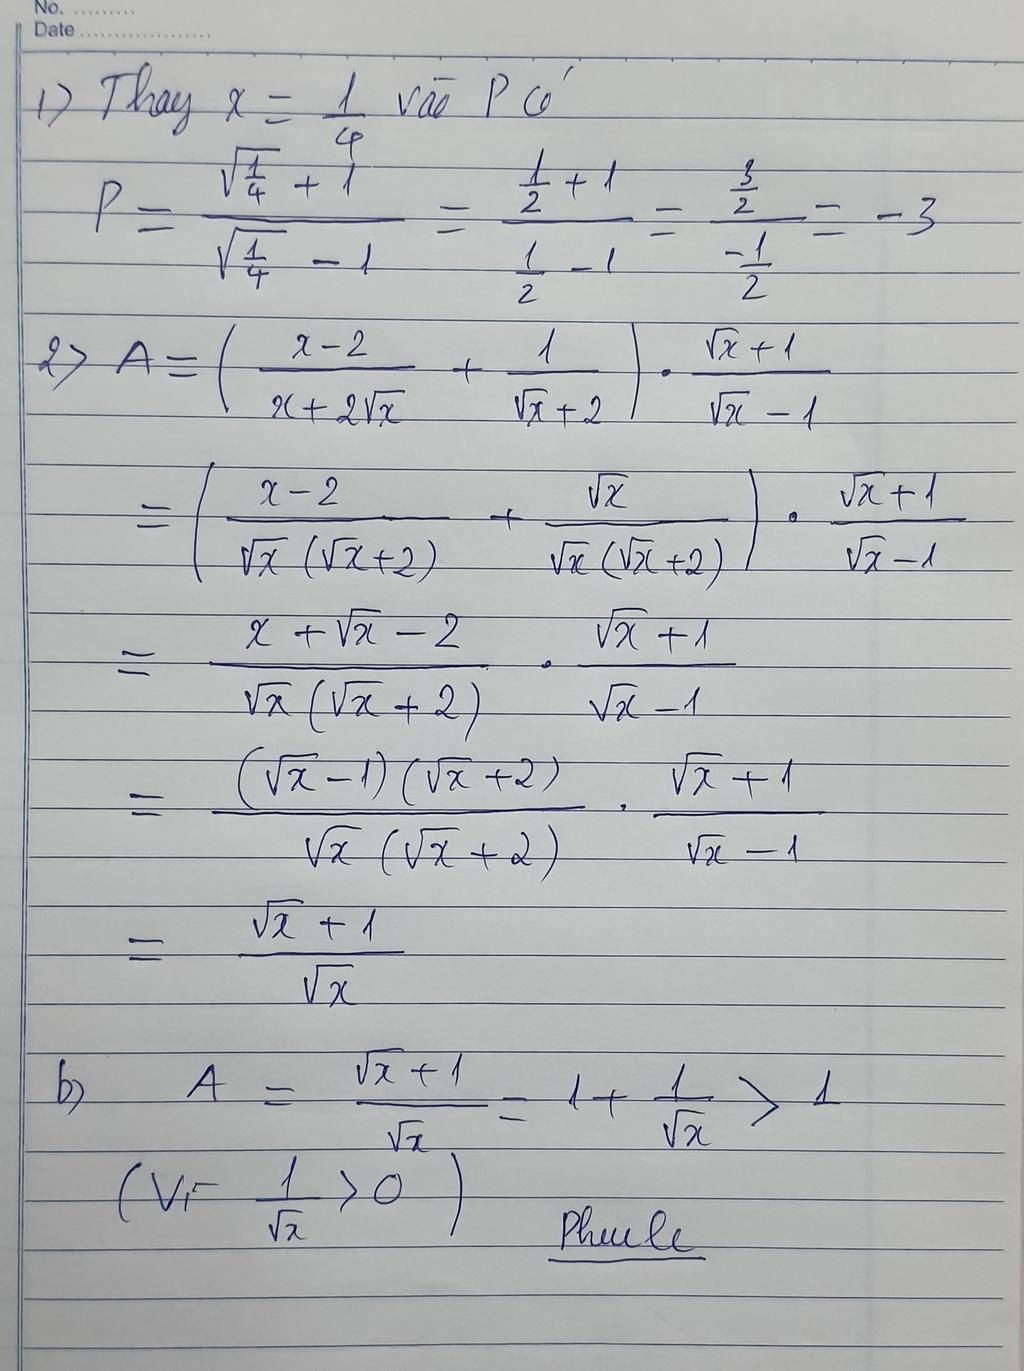 No. .........
Date ...................
1) Thay x = 1/4 vào P có
P = (√(1/4) + 1)/(√(1/4) - 1) = (1/2 + 1)/(1/2 - 1) = (3/2)/(-1/2) = -3
2) A = ((x-2)/(x+2√x) + 1/(√x+2)) . (√x+1)/(√x-1)
= ((x-2)/(√x(√x+2)) + √x/(√x(√x+2))) . (√x+1)/(√x-1)
= (x+√x-2)/(√x(√x+2)) . (√x+1)/(√x-1)
= ((√x-1)(√x+2))/(√x(√x+2)) . (√x+1)/(√x-1)
= (√x+1)/√x
b) A = (√x+1)/√x = 1 + 1/√x > 1
(Vì 1/√x > 0)